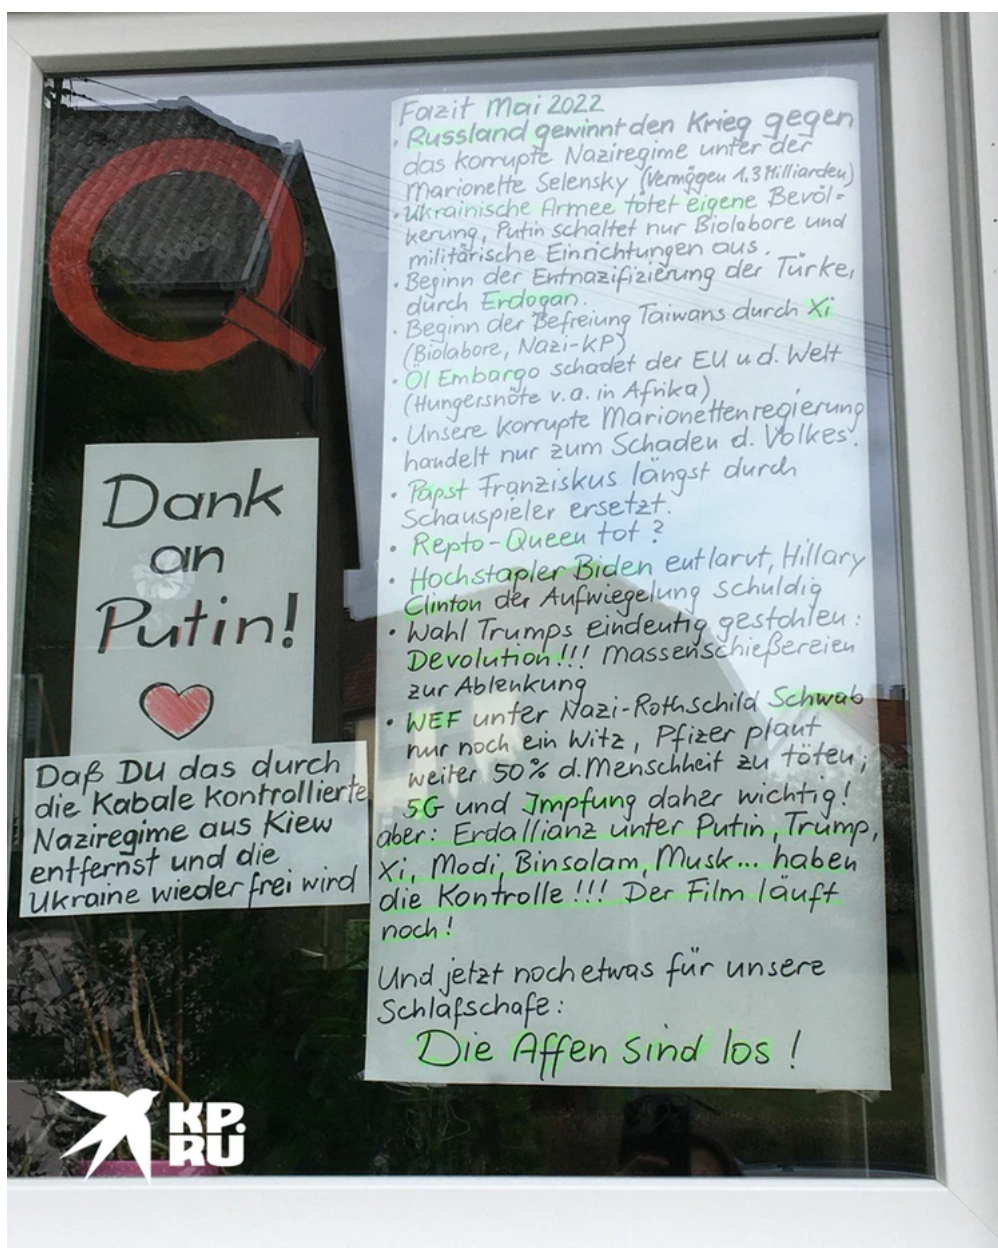 Q
Dank
an
Putin!
Daß DU das durch
die Kabale kontrollierte
Naziregime aus Kiew
entfernst und die
Ukraine wieder frei wird
Fazit Mai 2022
· Russland gewinnt den Krieg gegen
das korrupte Naziregime unter der
Marionette Selensky (Vermögen 1,3 Milliarden)
· Ukrainische Armee tötet eigene Bevöl-
kerung, Putin schaltet nur Biolabore und
militärische Einrichtungen aus.
· Beginn der Entnazifizierung der Türkei
durch Erdogan.
· Beginn der Befreiung Taiwans durch Xi
(Biolabore, Nazi-KP)
· Öl Embargo schadet der EU u d. Welt
(Hungersnöte v.a. in Afrika)
· Unsere korrupte Marionettenregierung
handelt nur zum Schaden d. Volkes.
· Papst Franziskus längst durch
Schauspieler ersetzt.
· Repto-Queen tot?
· Hochstapler Biden entlarvt, Hillary
Clinton der Aufwiegelung schuldig
· Wahl Trumps eindeutig gestohlen:
Devolution!!! Massenschießereien
zur Ablenkung
· WEF unter Nazi-Rothschild Schwab
nur noch ein Witz, Pfizer plant
weiter 50% d. Menschheit zu töten;
5G und Impfung daher wichtig!
aber: Erdallianz unter Putin, Trump,
Xi, Modi, Binsalam, Musk... haben
die Kontrolle!!! Der Film läuft
noch!
Und jetzt noch etwas für unsere
Schlafschafe:
Die Affen sind los!
KP.
RU